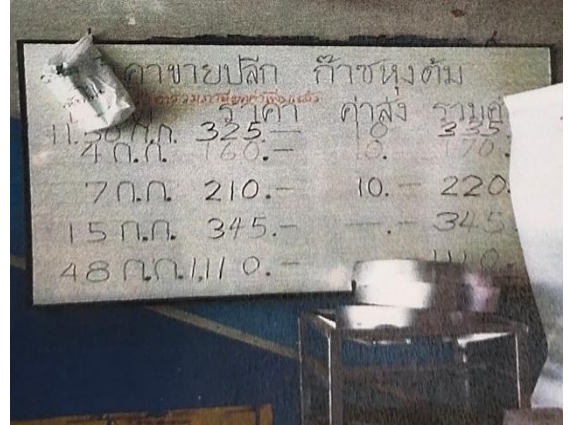 คาขายปลีก ก๊าซหุงต้ม
ราคา ค่าส่ง รวม
ก.ก. 325.- 335
4 ก.ก. 160.- 10. 170.
7 ก.ก. 210.- 10.- 220.
15 ก.ก. 345.- -.- 345
48 ก.ก. 1,110.-